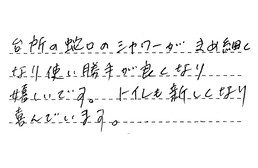 台所の蛇口のシャワーがきめ細く
なり使い勝手が良くなり
嬉しいです。トイレも新しくなり
喜んでいます。